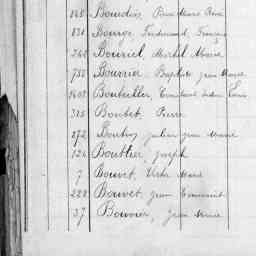 Bourdin, Pierre Marie René
831 Bourge, Ferdinand, François
248 Bouriel, Michel Marie
752 Bourrier, Baptiste Jean Marie
1408 Bouteiller, Constant Louis
325 Boutet, Pierre
272 Bouthry Julien Jean Marie
124 Bouttier, Joseph
7 Bouvet, Victor Marie
228 Bouvet, Jean Emmanuel
37 Bouvier, Jean Marie